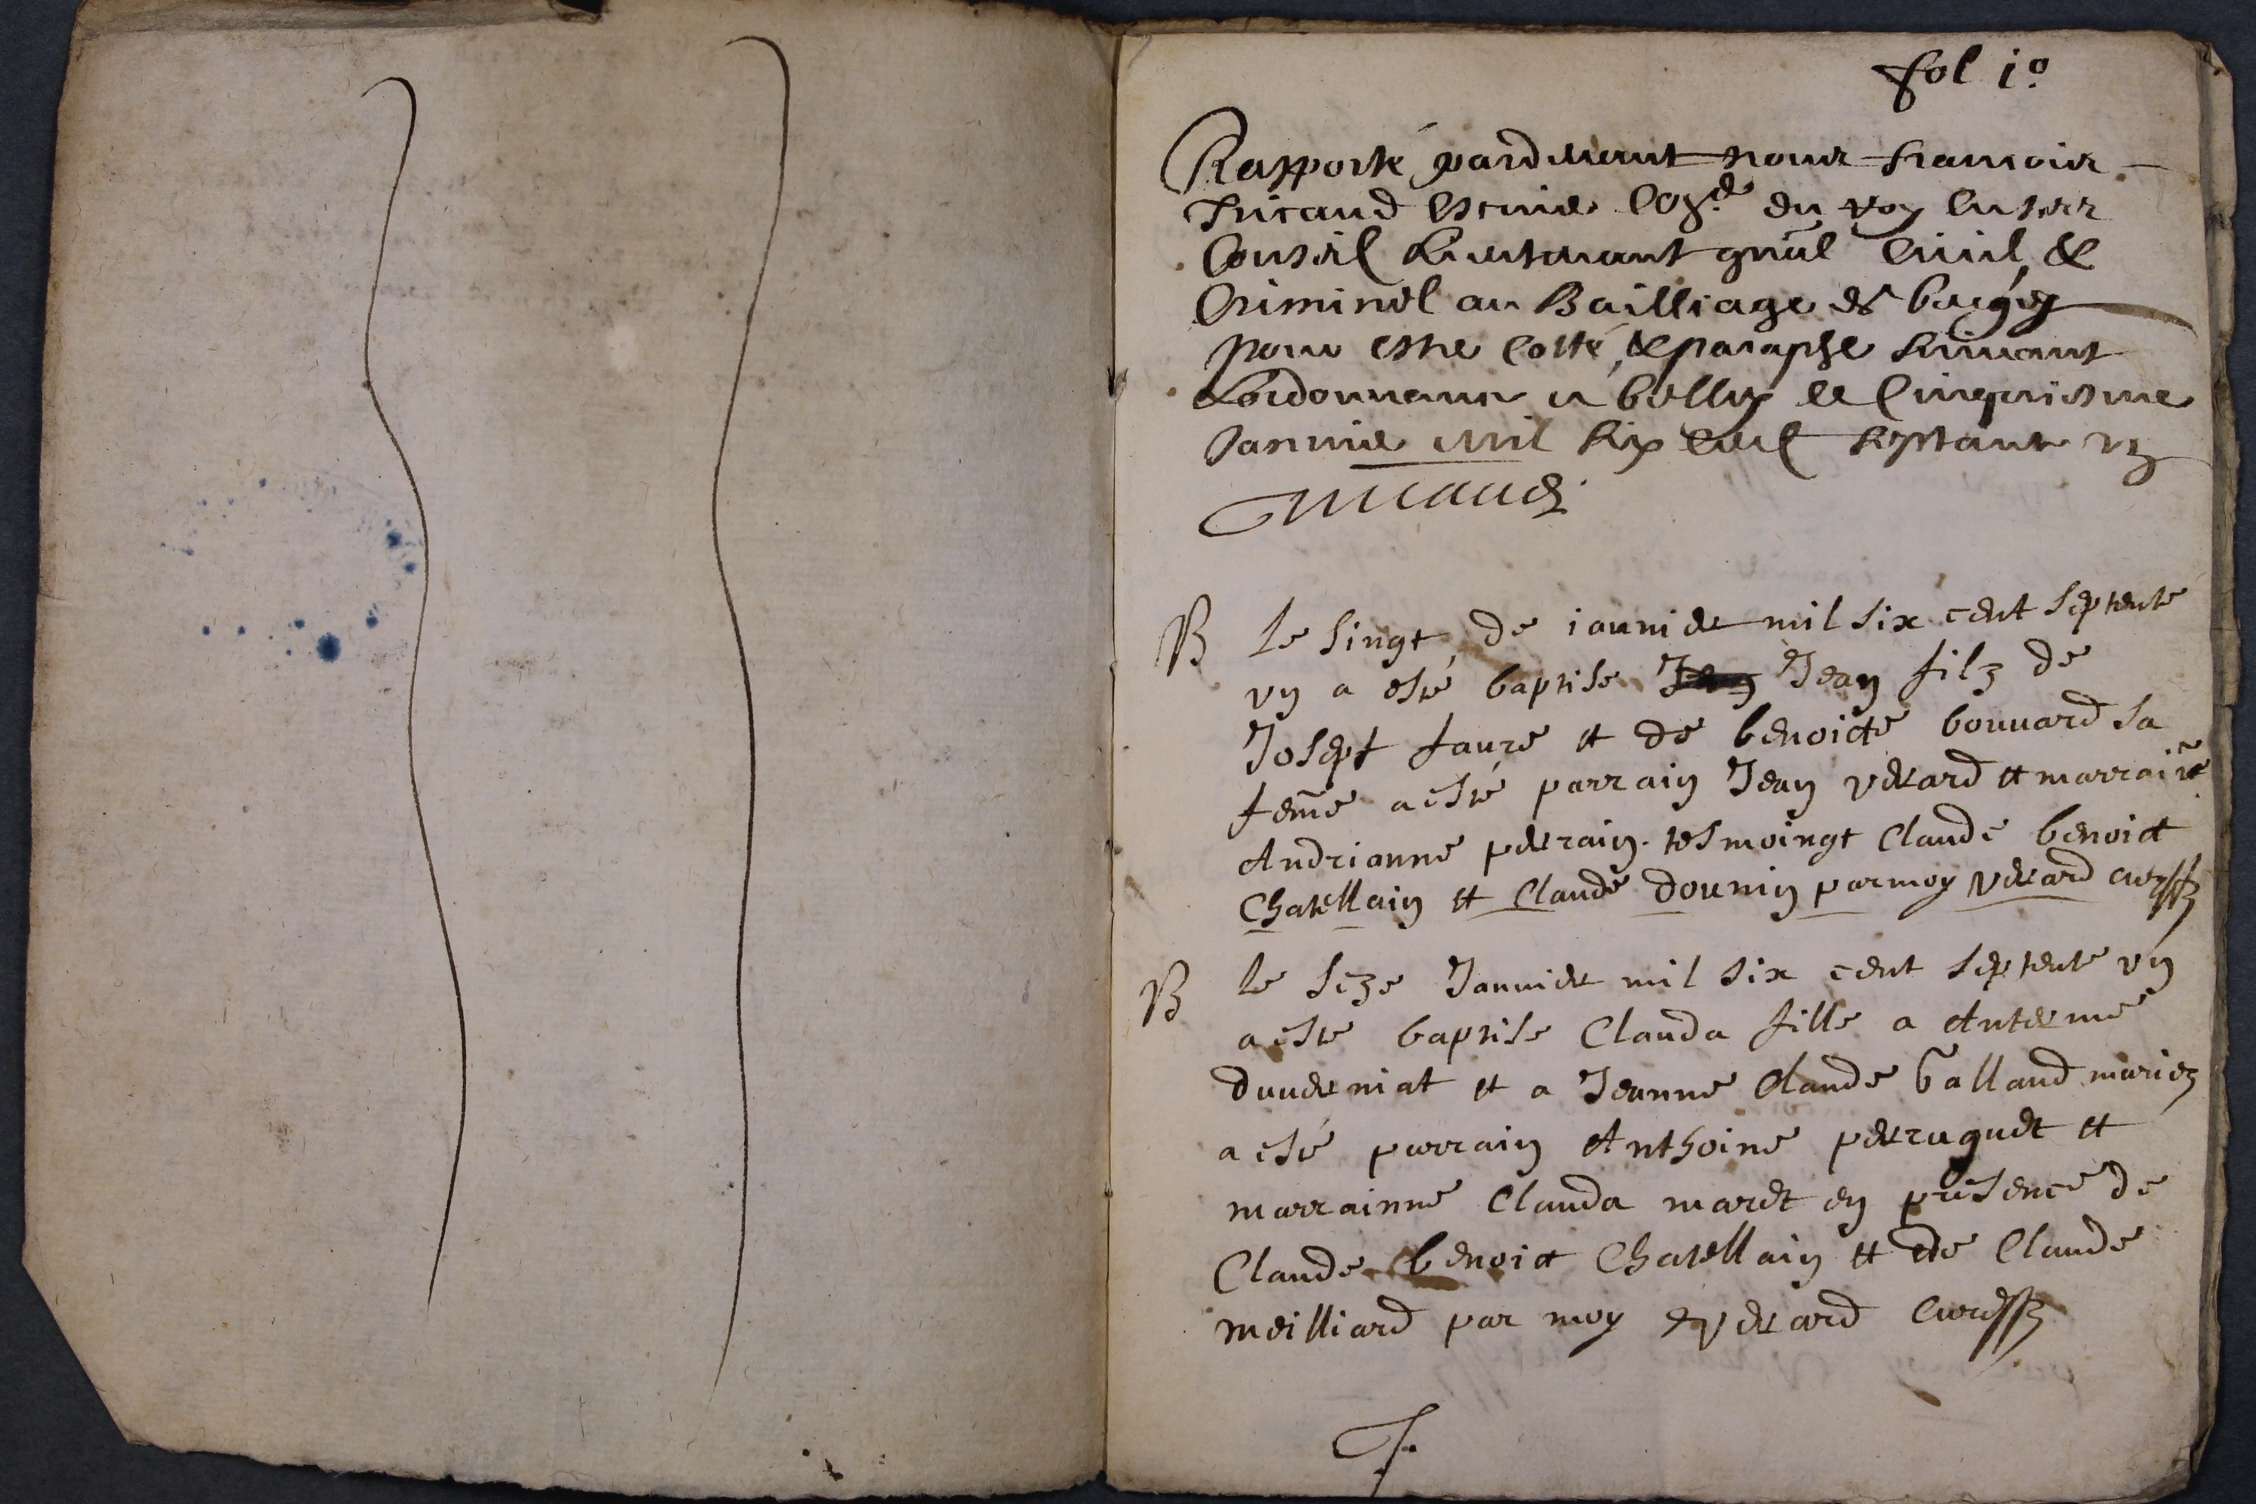 fol 1º
Rapporté pardevant nous francois
Tricaud Escuier Cos.er du roy en ses
Conseil Lieutenant gnâl Civil &
Criminel au Bailliage de bugey
pour estre Cotté & paraphe suivant
Lordonnance a belley le Cinquiesme
Janvier mil six cent septante un
Tricaud
B le singt de ianvier mil six cent septente
vn a esté baptise Jean filz de
Josept faure et de benoicte bouuard sa
feme a esté parrain Jean verard et marraine
Andrianne perrain. tesmoingt Claude benoict
Chatellain et Claude dounin par moy verard
B le seze Januier mil six cent septente vn
a este baptise Clauda fille a Anterme
duuerniat et a Jeanne Claude balland mariez
a esté parrain Anthoine perruquet et
marrainne Clauda maret en presence de
Claude benoict Chatellain et de Claude
meilliard par moy verard
T.